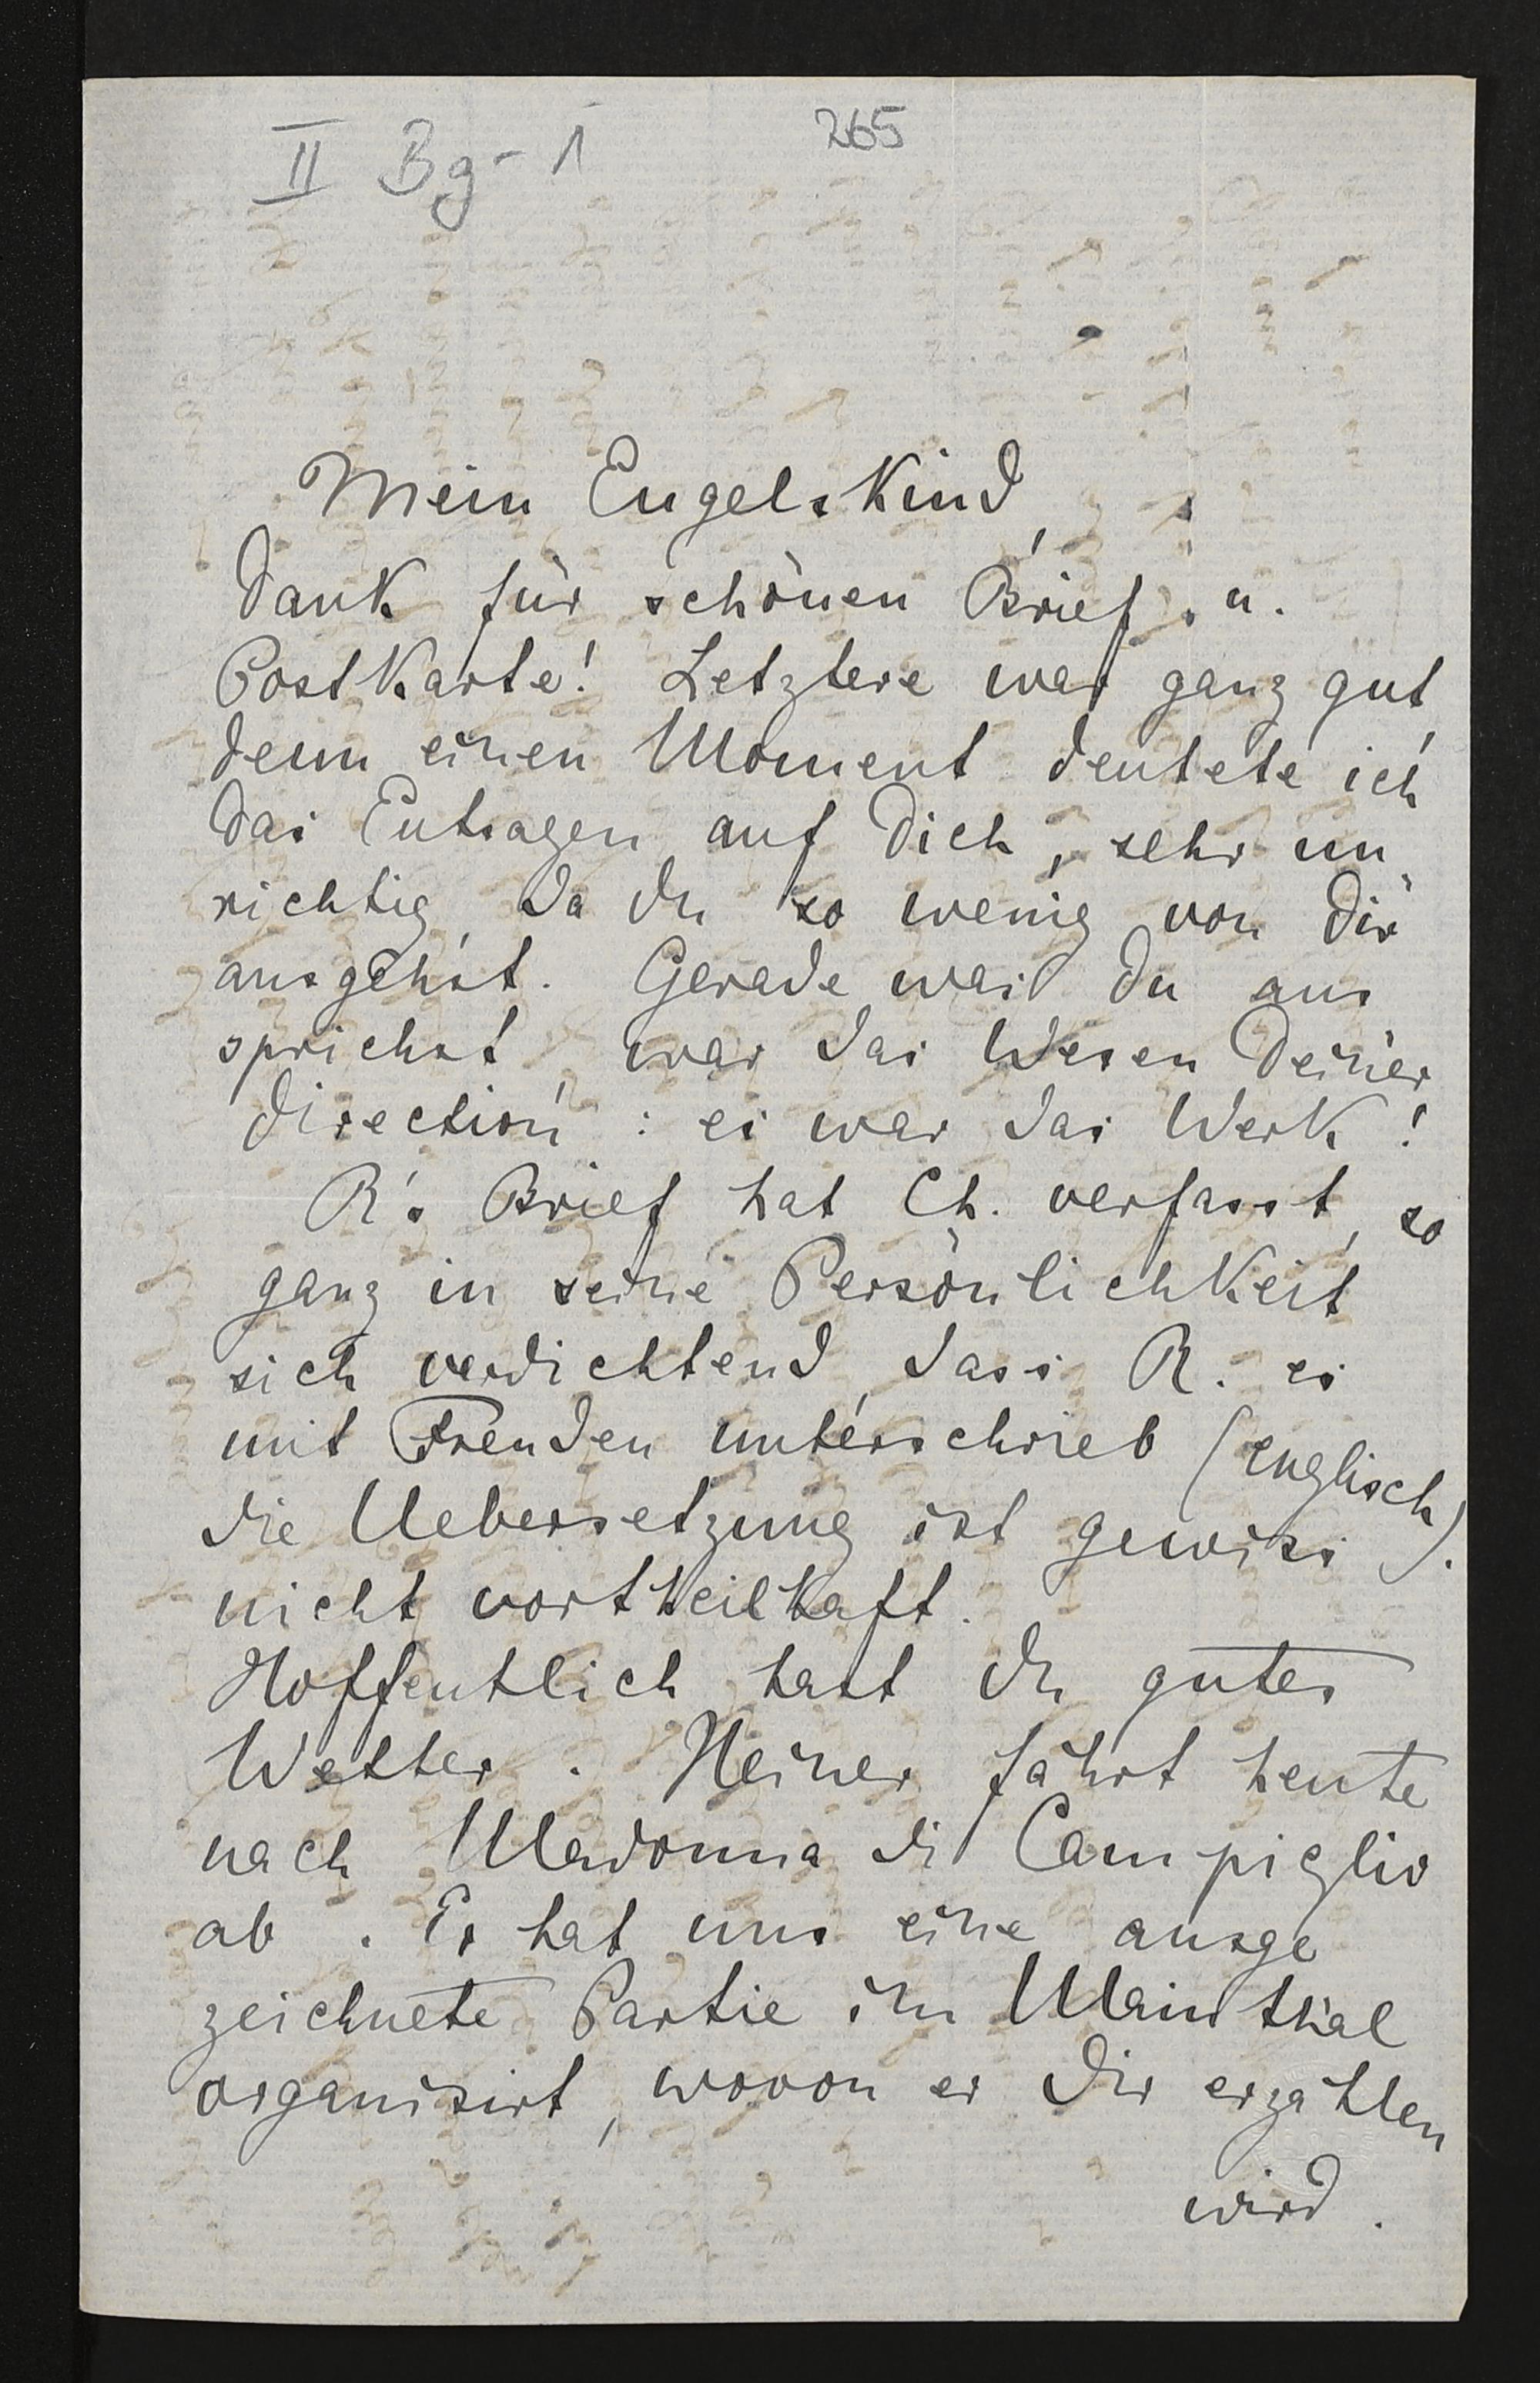 II Bg - 1 265
Mein Engelskind,
Dank für schönen Brief u.
Postkarte! Letztere war ganz gut,
denn einen Moment deutete ich
das Entsagen auf Dich, sehr un
richtig, da du so wenig von Dir
ausgehst. Gerade was du aus
sprichst, war das Wesen Deiner
Direction: es war das Werk!
R's Brief hat Ch. verfasst, so
ganz in seine Persönlichkeit
sich verdichtend, dass R. es
mit Freuden unterschrieb (englisch).
die Uebersetzung ist gewiss
nicht vortheilhaft.
Hoffentlich hast du gutes
Wetter. Heiner fährt heute
nach Madonna di Campiglio
ab. Er hat uns eine ausge
zeichnete Partie im Mainthal
organisirt, wovon er Dir erzählen
wird.